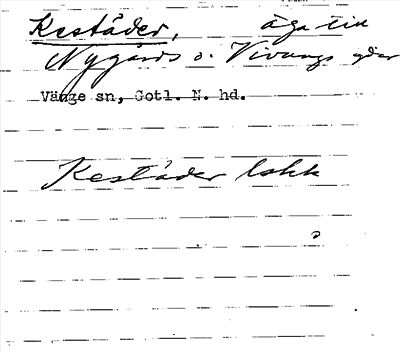 Kestäder, äga till
Nygårds o. Vivungs ägor
Vänge sn, Gotl. N. hd.
Kestäder lokk
?